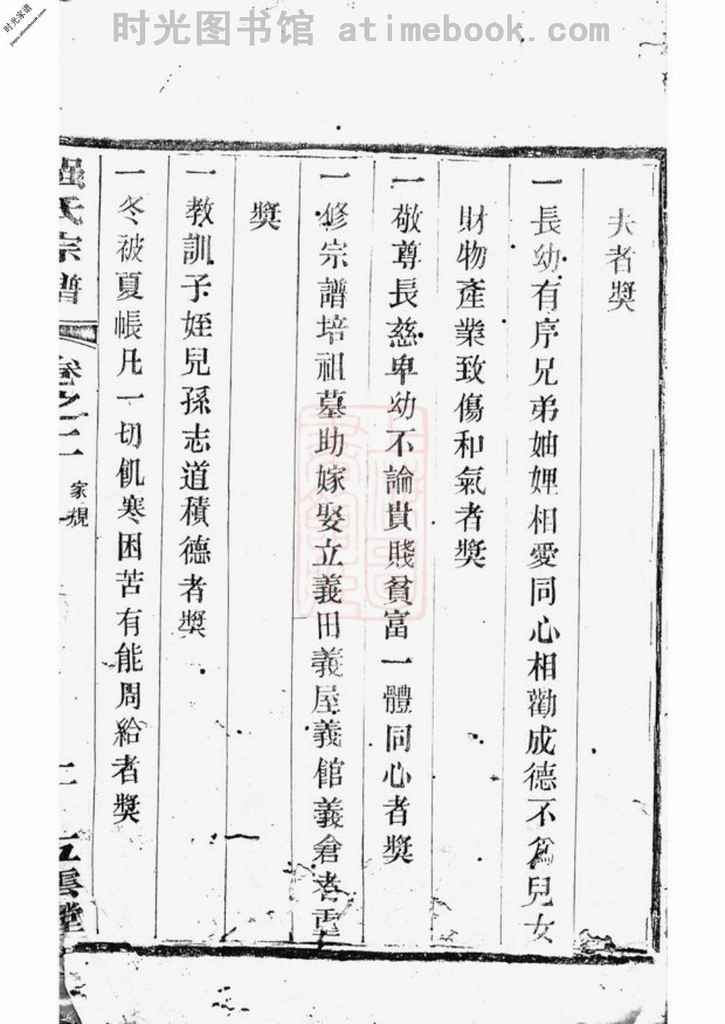 时光图书馆 atimebook.com
时光家谱
夫者奬
一長幼有序兄弟妯娌相愛同心相勸成德不爲兒女
財物產業致傷和氣者奬
一敬尊長慈卑幼不論貴賤貧富一體同心者奬
一修宗譜培祖墓助嫁娶立義田義屋義館義倉者重
奬
一教訓子姪兒孫志道積德者奬
一冬被夏帳凡一切飢寒困苦有能周給者奬
氏宗譜
卷之二
家規
二
五雲堂